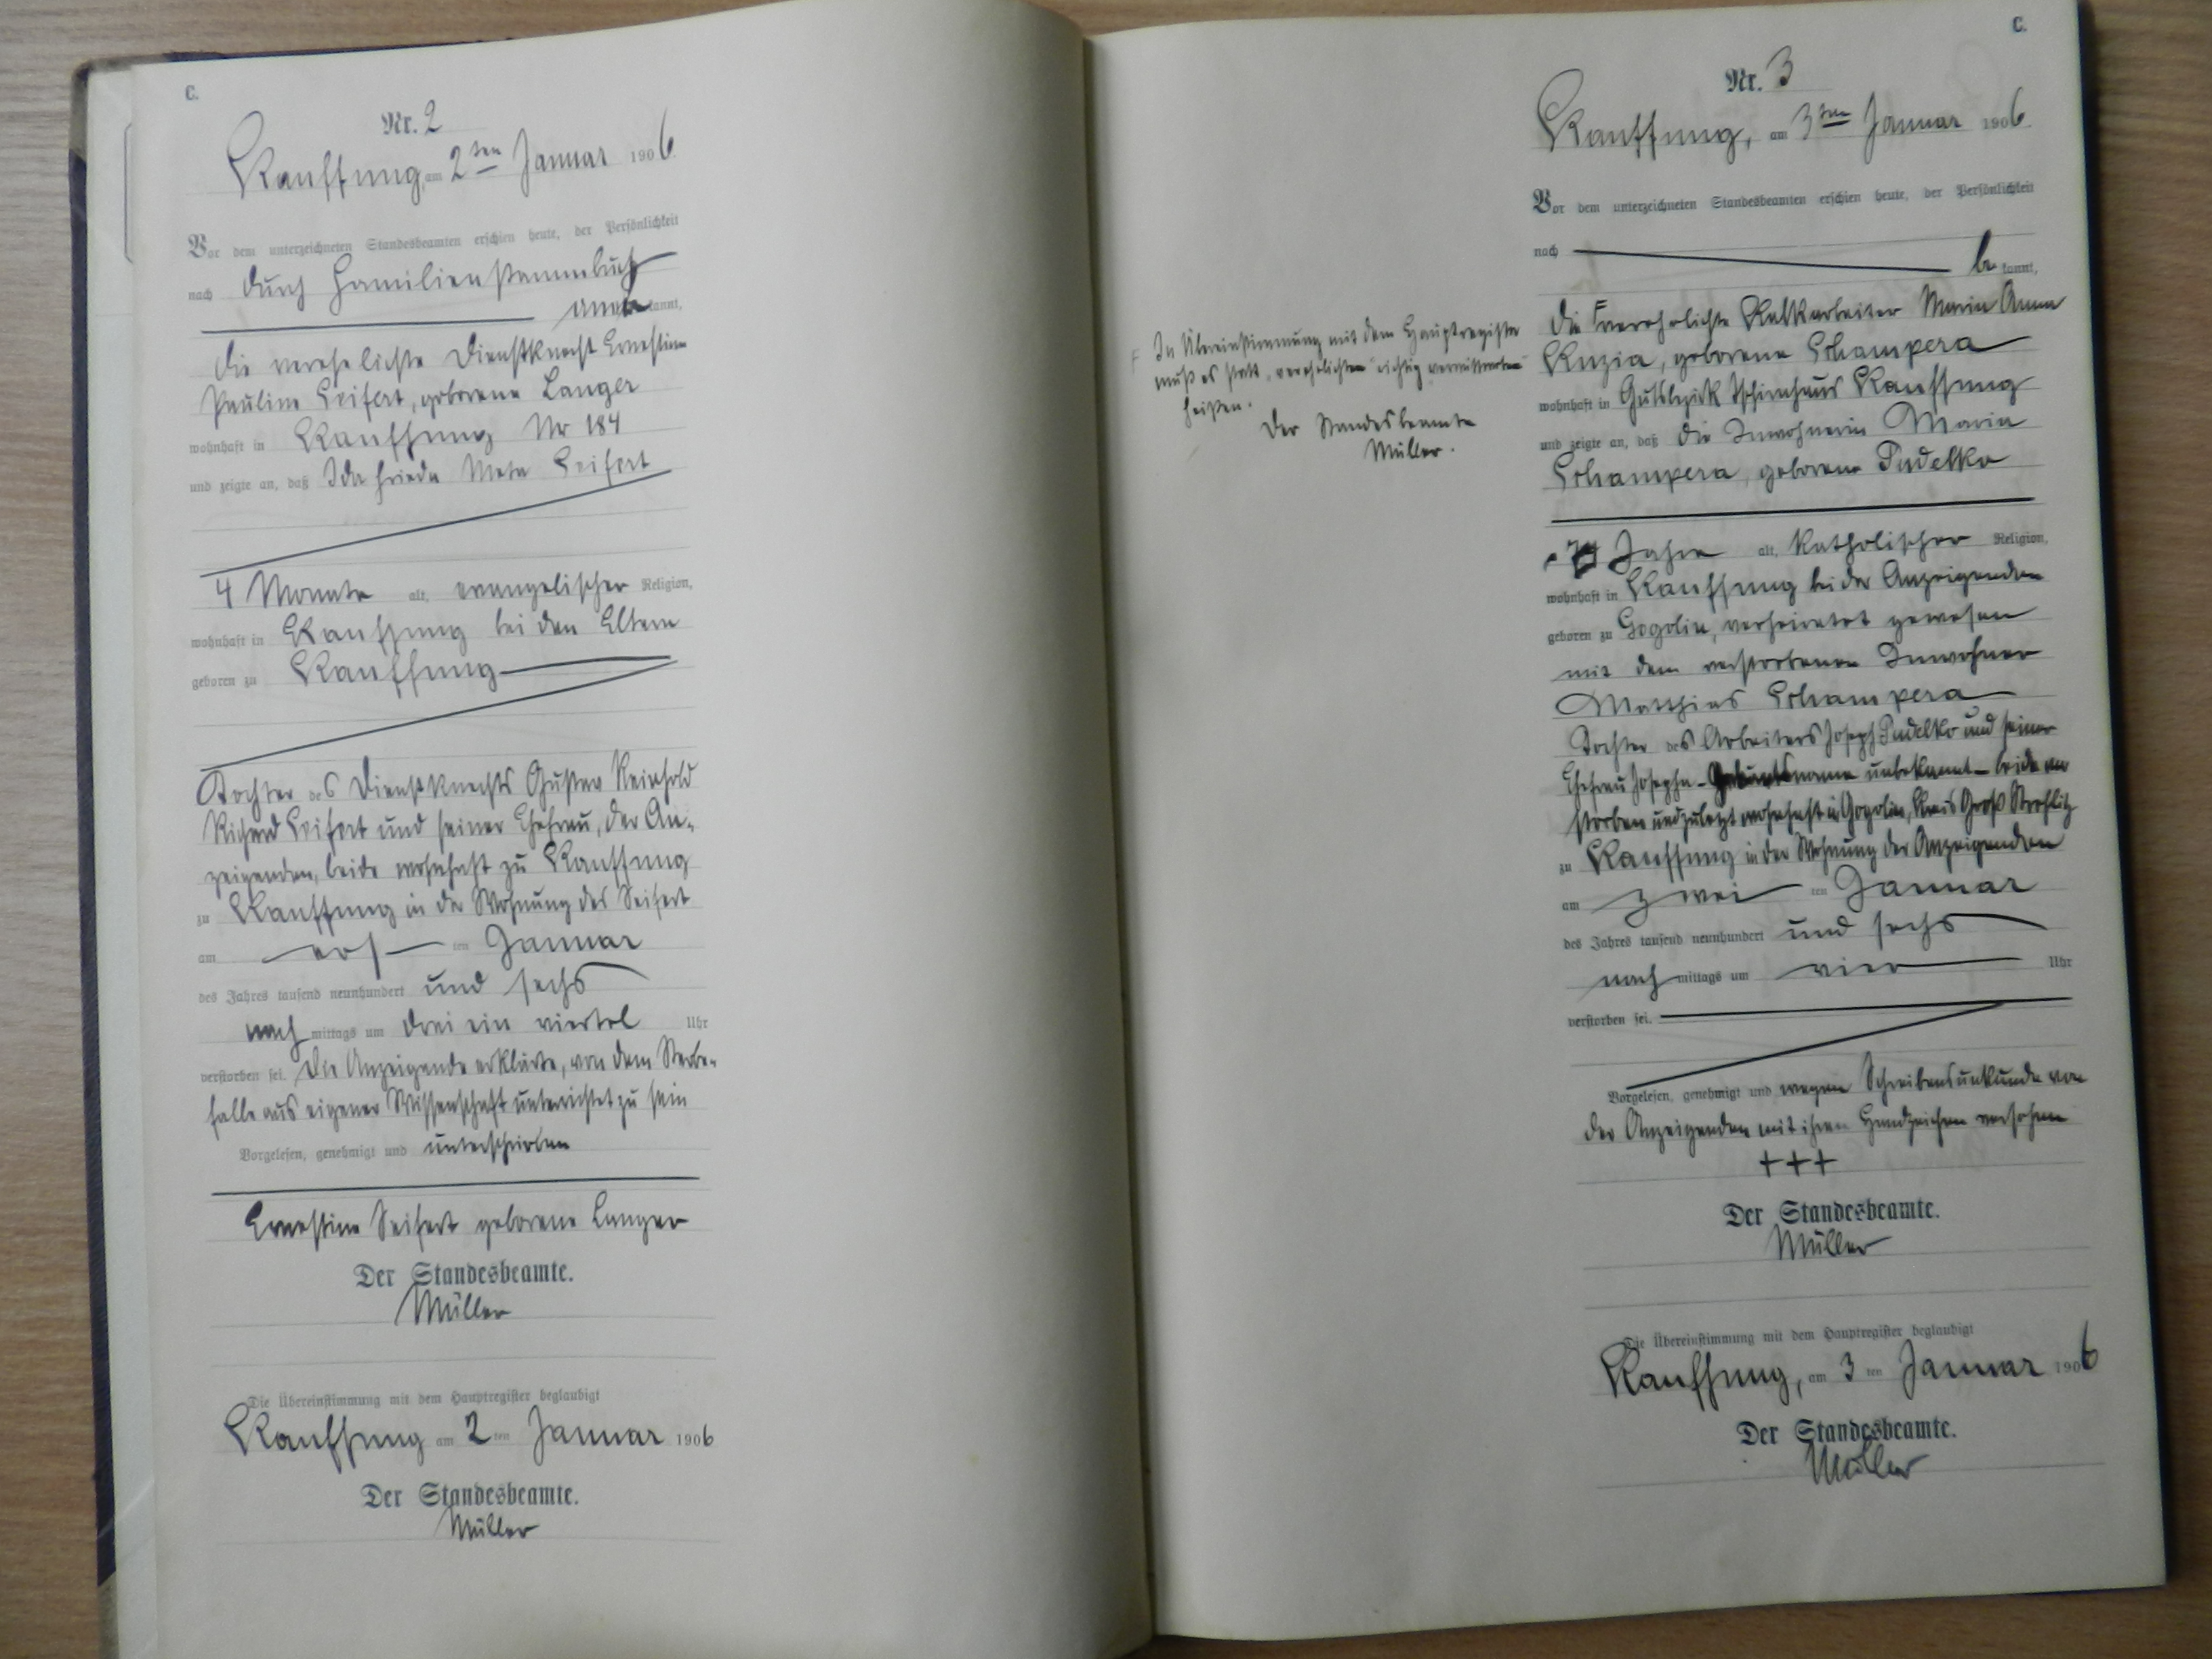 C.
Nr. 2
Kauffung, am 2ten Januar 1906.
Vor dem unterzeichneten Standesbeamten erschien heute, der Persönlichkeit
nach durch Familienstammbuch
anerkannt,
die verehelichte Dienstknecht Ernestine
Pauline Seifert, geborene Langer
wohnhaft in Kauffung Nr 184
und zeigte an, daß Ida Frieda Meta Seifert
4 Monate alt, evangelischer Religion,
wohnhaft in Kauffung bei den Eltern
geboren zu Kauffung
Tochter des Dienstknechts Gustav Reinhold
Richard Seifert und seiner Ehefrau, der An-
zeigenden, beide wohnhaft zu Kauffung
zu Kauffung in der Wohnung des Seifert
am ersten Januar
des Jahres tausend neunhundert und sechs
nachmittags um drei ein viertel Uhr
verstorben sei. Die Anzeigende erklärte, von dem Sterbe-
falle aus eigener Wissenschaft unterrichtet zu sein
Vorgelesen, genehmigt und unterschrieben
Ernestine Seifert geborene Langer
Der Standesbeamte.
Müller
Die Übereinstimmung mit dem Hauptregister beglaubigt
Kauffung am 2ten Januar 1906
Der Standesbeamte.
Müller
C.
Nr. 3
Kauffung, am 3ten Januar 1906.
Vor dem unterzeichneten Standesbeamten erschien heute, der Persönlichkeit
nach
bekannt,
die verehelichte Kalkarbeiter Maria Anna
Kuzia, geborene Schampera
wohnhaft in Gutsbezirk Tschirnhaus Kauffung
und zeigte an, daß die Inwohnerin Maria
Schampera, geborene Pudelko
Jahre alt, katholischer Religion,
wohnhaft in Kauffung bei der Anzeigenden
geboren zu Gogolin, verheiratet gewesen
mit dem verstorbenen Inwohner
Matthias Schampera
Tochter des Arbeiters Joseph Pudelko und seiner
Ehefrau Josepha - Geburtsname unbekannt - beide ver
storben und zuletzt wohnhaft in Gogolin, Kreis Groß Strehlitz
zu Kauffung in der Wohnung der Anzeigenden
am zweiten Januar
des Jahres tausend neunhundert und sechs
nachmittags um vier Uhr
verstorben sei.
Vorgelesen, genehmigt und wegen Schreibensunkunde von
der Anzeigenden mit ihren Handzeichen versehen
+++
Der Standesbeamte.
Müller
Die Übereinstimmung mit dem Hauptregister beglaubigt
Kauffung, am 3ten Januar 1906
Der Standesbeamte.
Müller
In Übereinstimmung mit dem Hauptregister
muß es statt "verehelichten" richtig verwittweten
heißen.
Der Standesbeamte
Müller.